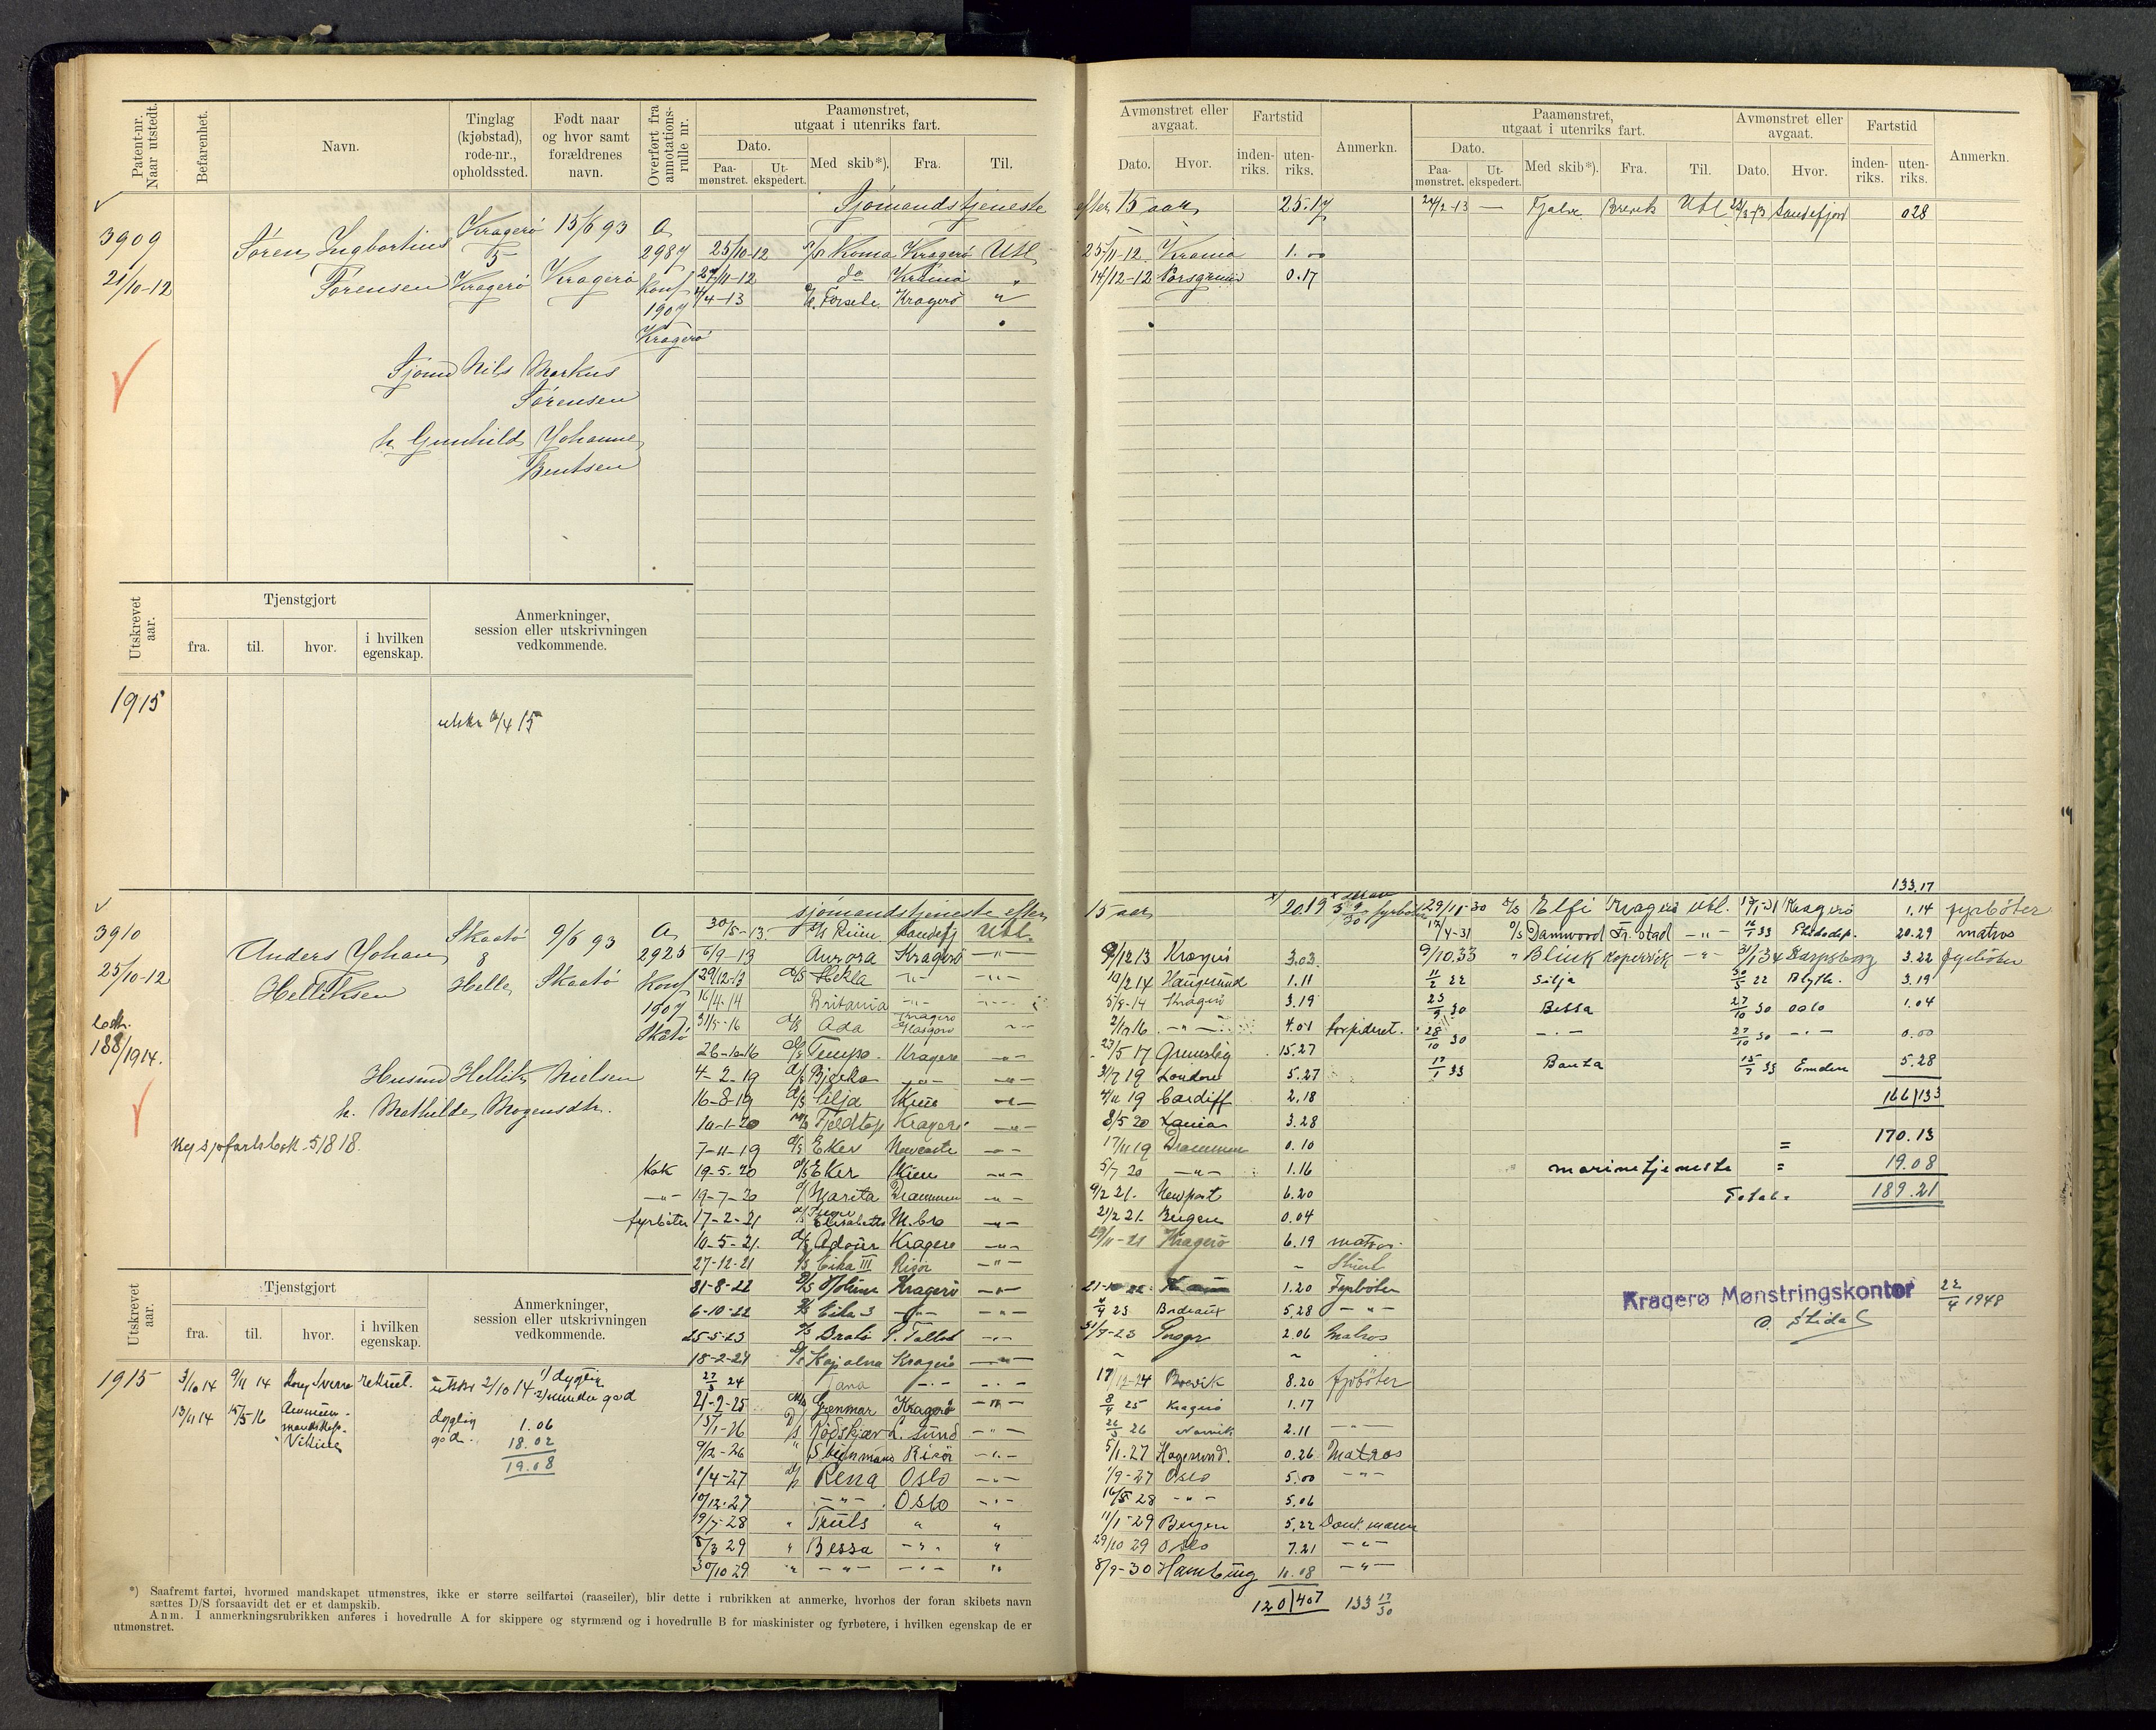 Patent-nr. Naar utstedt.
Befarenhet.
Navn.
Tinglag (kjøbstad), rode-nr., opholdssted.
Født naar og hvor samt forældrenes navn.
Overført fra annotations-rulle nr.
Paamønstret, utgaat i utenriks fart.
Dato.
Paa-mønstret.
Ut-ekspedert.
Med skib*).
Fra.
Til.
Avmønstret eller avgaat.
Dato.
Hvor.
Fartstid
inden-riks.
uten-riks.
Anmerkn.
Paamønstret, utgaat i utenriks fart.
Dato.
Paa-mønstret.
Ut-ekspedert.
Med skib*).
Fra.
Til.
Avmønstret eller avgaat.
Dato.
Hvor.
Fartstid
inden-riks.
uten-riks.
Anmerkn.
Sjømandstjeneste efter 15 aar 25.17
3909
21/10-12
Søren Ingbortius
Sørensen
Kragerø
5
Kragerø
15/6 93
Kragerø
A
2987
Konf
1907
Kragerø
Sjømd Nils Markus
Sørensen
h. Gunhild Johanne
Bentsen
25/10-12 Roma Kragerø Utl 25/11-12 Krania 1.00
27/11-12 do Krania " 14/12-12 Porsgrund 0.17
4-13 Forsete Kragerø "
2-13 — Brevik Utl Sandefjord 028
Utskrevet aar.
Tjenstgjort
fra.
til.
hvor.
i hvilken egenskap.
Anmerkninger, session eller utskrivningen vedkommende.
1915
utskr 4 15
3910
25/10-12
188/1914.
Anders Johan
Helliksen
Skaatø
8
Helle
9/6 93
Skaatø
A
2925
Konf
1907
Skatø
Husmd Hellik Nielsen
h. Mathilde Mogensdtr.
Ny sjøfartsbok 51818.
sjømandstjeneste efter 15 aar 20.19
30/5-13. Sandefj Utl.
6/9-13 Aurora Kragerø —"— 12 13 Kragerø 3.03
29/12-13 D/S Hekla —"— —"— 2 14 Haugesund 1.11
16/4.14 Britania —"— 14 Kragerø 3.19
31/5-16 D/S Ada Kragerø Glasgow 16 —"— 4.01 torpideret.
26-10-16 D/S Tempo. Kragerø —"— 23/5 17 Grimsby 15.27
4-2-19 D/S Bjerka —"— —"— 31/7 19 London 5.27
16-8-19 D/S Silja Skien —"— 19 Cardiff 2.18
10-1-20 Fjeldtop Kragerø —"— 8/5 20 3.28
7-11-19 D/S Eker Newcastle —"— 17/11 19 Drammen 0.10
Kok 19-5-20 D/S Eker Skien —"— 5/7 20 —"— 1.16
—"— 19-7-20 Marita Drammen —"— 9/2 21. Newport 6.20
fyrbøter 17-2-21 Elisabeth M.bro —"— 21/2 21. Bergen 0.04
10-5-21. D/S Adour Kragerø —"— 29/11-21 Kragerø 6.19 matros.
27-12-21 Cika III Risør —"—
31-8-22 D/S Kragerø —"— 1.20 Fyrbøter
6-10-22 D/S Cika 3 —"— —"— 4 23 Bordeaux 5.28 —"—
25-5-23 D/S —"— 31/7-23 2.06 Matros
18-2-24 D/S Kragerø —"—
27/3 24 Tana —"— —"— 17/12-24 Brevik 8.20 fyrbøter
21-2-25 Grenmar Kragerø —"— 8/4 25 Kragerø 1.17
15/1-26 D/S Rødskjær L. Sund —"— 26/3 26 Narvik 2.11 —"—
9/12-26 " Steinmann Risør —"— 5/1.27 Hagesund. 0.26 Matros
1/4-27 D/S Rena Oslo —"— 1/9-27 Oslo 5.00 —"—
10/12-27 —"— Oslo —"— 16/5 28 —"— 5.06
19/7-28 " Truls " " 11/1-29 Bergen 5.22 Donk.mann
8/3 29 " Bessa —"— " 29/10 29 Oslo 7.21 —"—
30/10 29 " —"— —"— " 8/9-30 Hamburg 11.08 —"—
120/407 133 17/30
133.17
29/11-30 D/S Elfi Kragerø utl. Kragerø 1.14 fyrbøter
17/4-31 D/S Damwood Fr.stad —"— 16/1 33 Philadep. 20.29 matros
9/10.33 " Blink Kopervik —"— 31/1 34 Sarpsborg 3.22 fyrbøter
11/2 22 Silja 30/5 22 Blyth. 3.19
23/9 30 Bessa 27/10 30 oslo 1.04
28/10 30 —"— 27/10 30 —"— 0.00
17/1 33 Banta 15/7 33 Emden 5.28
166/133
= 170.13
marinetjeneste = 19.08
Total = 189.21
Kragerø Mønstringskontor 22/4 1948
Utskrevet aar.
Tjenstgjort
fra.
til.
hvor.
i hvilken egenskap.
Anmerkninger, session eller utskrivningen vedkommende.
1915
3/10 14 9/11 14 Kong Sverre rekrut. utskr 2/10 14 1) dygtig 2) mindre god
13/11 14 15/5 16 dygtig 1.06
god. 18.02
19.08
*) Saafremt fartøi, hvormed mandskapet utmønstres, ikke er større seilfartøi (raaseiler), blir dette i rubrikken at anmerke, hvorhos der foran skibets navn
sættes D/S forsaavidt det er et dampskib.
Anm. I anmerkningsrubrikken anføres i hovedrulle A for skippere og styrmænd og i hovedrulle B for maskinister og fyrbøtere, i hvilken egenskap de er
utmønstret.